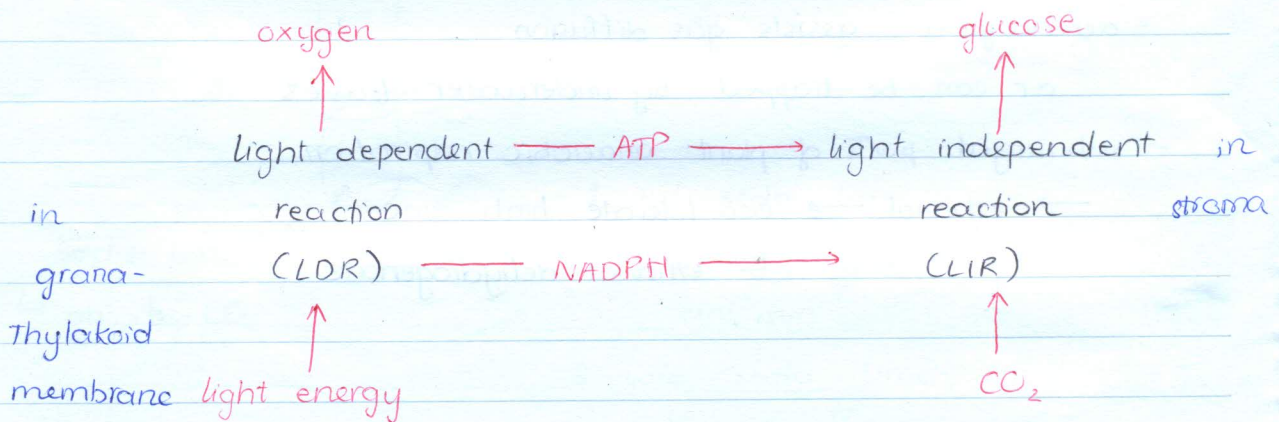 oxygen glucose
light dependent ATP light independent in
in reaction reaction stroma
grana- (LDR) NADPH (LIR)
Thylakoid
membrane light energy CO₂